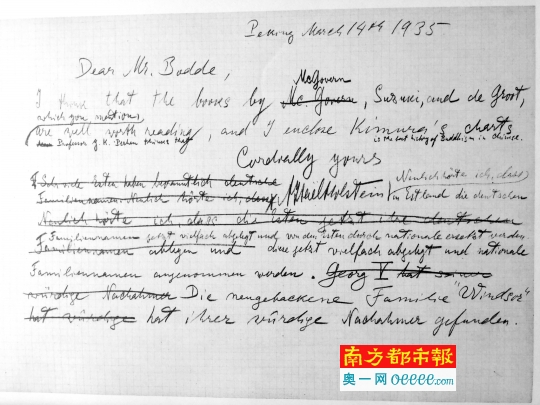 Peking March 14th 1935
Dear Mr. Bodde,
McGovern
I think that the books by Mc. Govern, Suzuki, and de Groot,
which you mention,
are well worth reading, and I enclose Kimura's charts
Professor J. K. thinks that is the best history of Buddhism in Chinese.
Cordially yours
AStaëlHolstein
Neulich hörte ich, dass
in Estland die deutschen
Familiennamen Neulich hörte ich, dass
Neulich hörte ich dass die Esten jetzt ihre deutschen
Familiennamen jetzt vielfach abgelegt und von den Esten durch nationale ersetzt werden
Familiennamen ablegen und diese jetzt vielfach abgelegt und nationale
Familiennamen angenommen werden. Georg V hat seine
würdige Nachahmer Die neugebackene Familie "Windsor"
hat würdige hat ihrer würdige Nachahmer gefunden.
南方都市報
奥一网oeeee.com